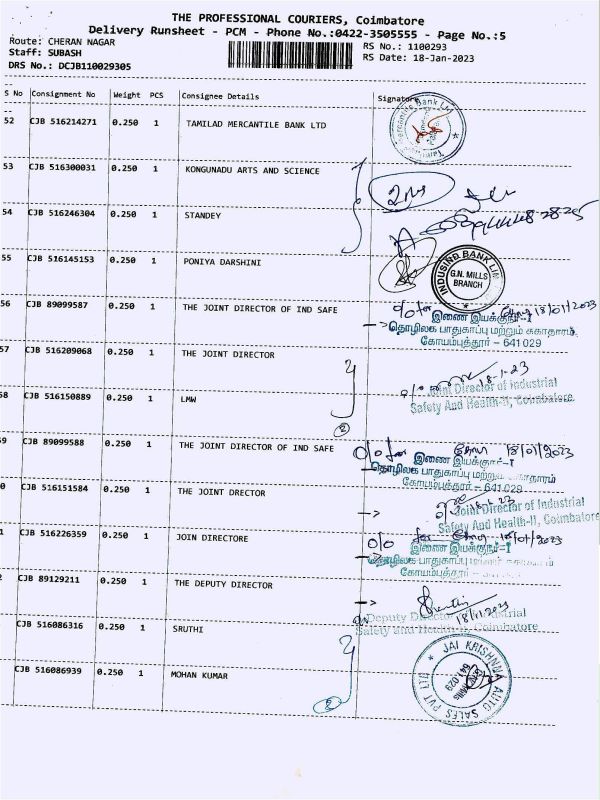 THE PROFESSIONAL COURIERS, Coimbatore
Delivery Runsheet - PCM - Phone No.:0422-3505555 - Page No.:5
Route: CHERAN NAGAR
Staff: SUBASH
DRS No.: DCJB110029305
RS No.: 1100293
RS Date: 18-Jan-2023
S No Consignment No Weight PCS Consignee Details Signature
52 CJB 516214271 0.250 1 TAMILAD MERCANTILE BANK LTD
53 CJB 516300031 0.250 1 KONGUNADU ARTS AND SCIENCE
54 CJB 516246304 0.250 1 STANDEY
55 CJB 516145153 0.250 1 PONIYA DARSHINI
INDUSIND BANK LTD
G.N. MILLS
BRANCH
56 CJB 89099587 0.250 1 THE JOINT DIRECTOR OF IND SAFE
18/01/2023
இணை இயக்குநர்-I
தொழிலக பாதுகாப்பு மற்றும் சுகாதாரம்
கோயம்புத்தூர் – 641 029
57 CJB 516209068 0.250 1 THE JOINT DIRECTOR
18-1-23
Joint Director of Industrial
Safety And Health-II, Coimbatore
58 CJB 516150889 0.250 1 LMW
2
59 CJB 89099588 0.250 1 THE JOINT DIRECTOR OF IND SAFE
18/01/2023
இணை இயக்குநர்-I
தொழிலக பாதுகாப்பு மற்றும் சுகாதாரம்
கோயம்புத்தூர் – 641 029
0 CJB 516151584 0.250 1 THE JOINT DRECTOR
Joint Director of Industrial
Safety And Health-II, Coimbatore
1 CJB 516226359 0.250 1 JOIN DIRECTORE
18/01/2023
இணை இயக்குநர்-I
தொழிலக பாதுகாப்பு மற்றும் சுகாதாரம்
கோயம்புத்தூர் – 641 029
2 CJB 89129211 0.250 1 THE DEPUTY DIRECTOR
Deputy Director of Industrial
Safety and Health II, Coimbatore
CJB 516086316 0.250 1 SRUTHI
CJB 516086939 0.250 1 MOHAN KUMAR
2
JAI KRISHNAA AUTO SALES PVT LTD
641 029